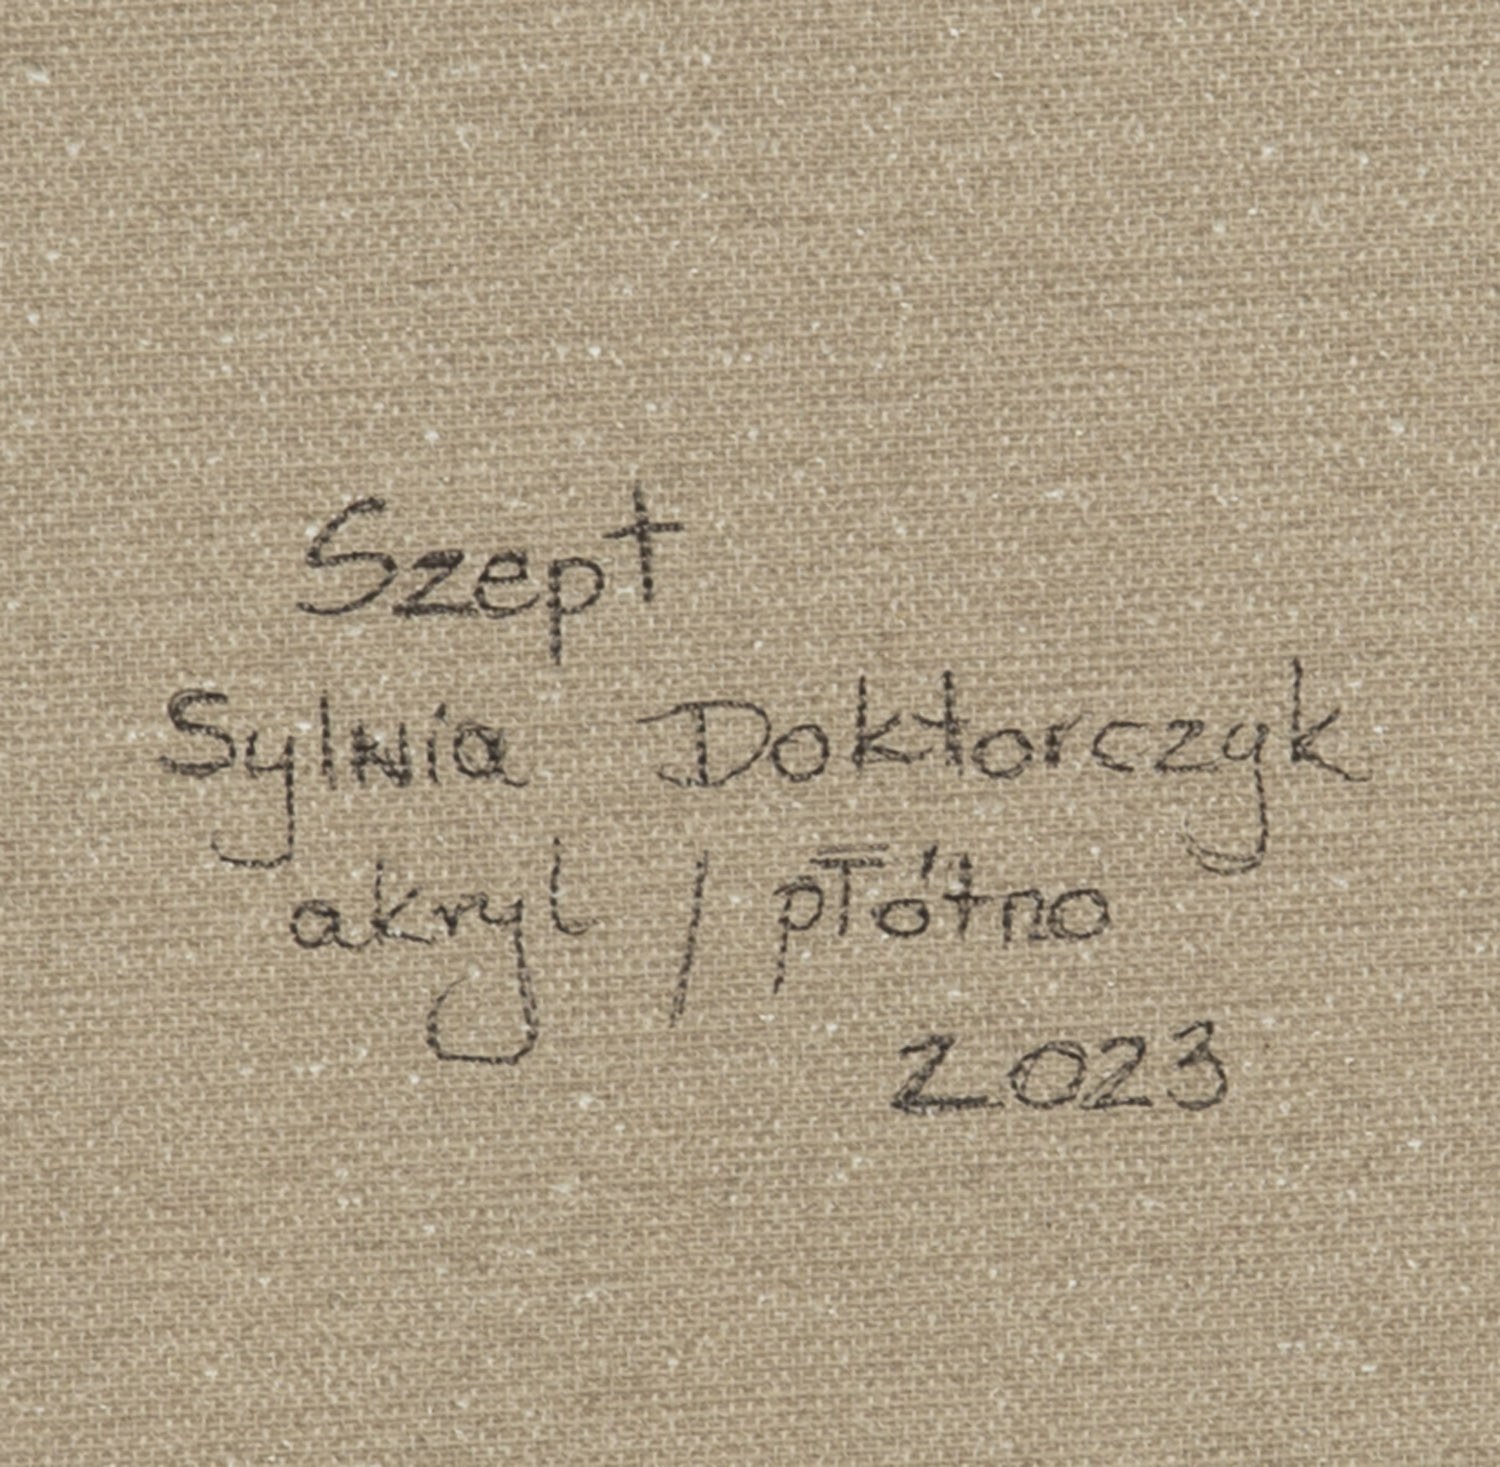 Szept
Sylwia Doktorczyk
akryl / płótno
2023